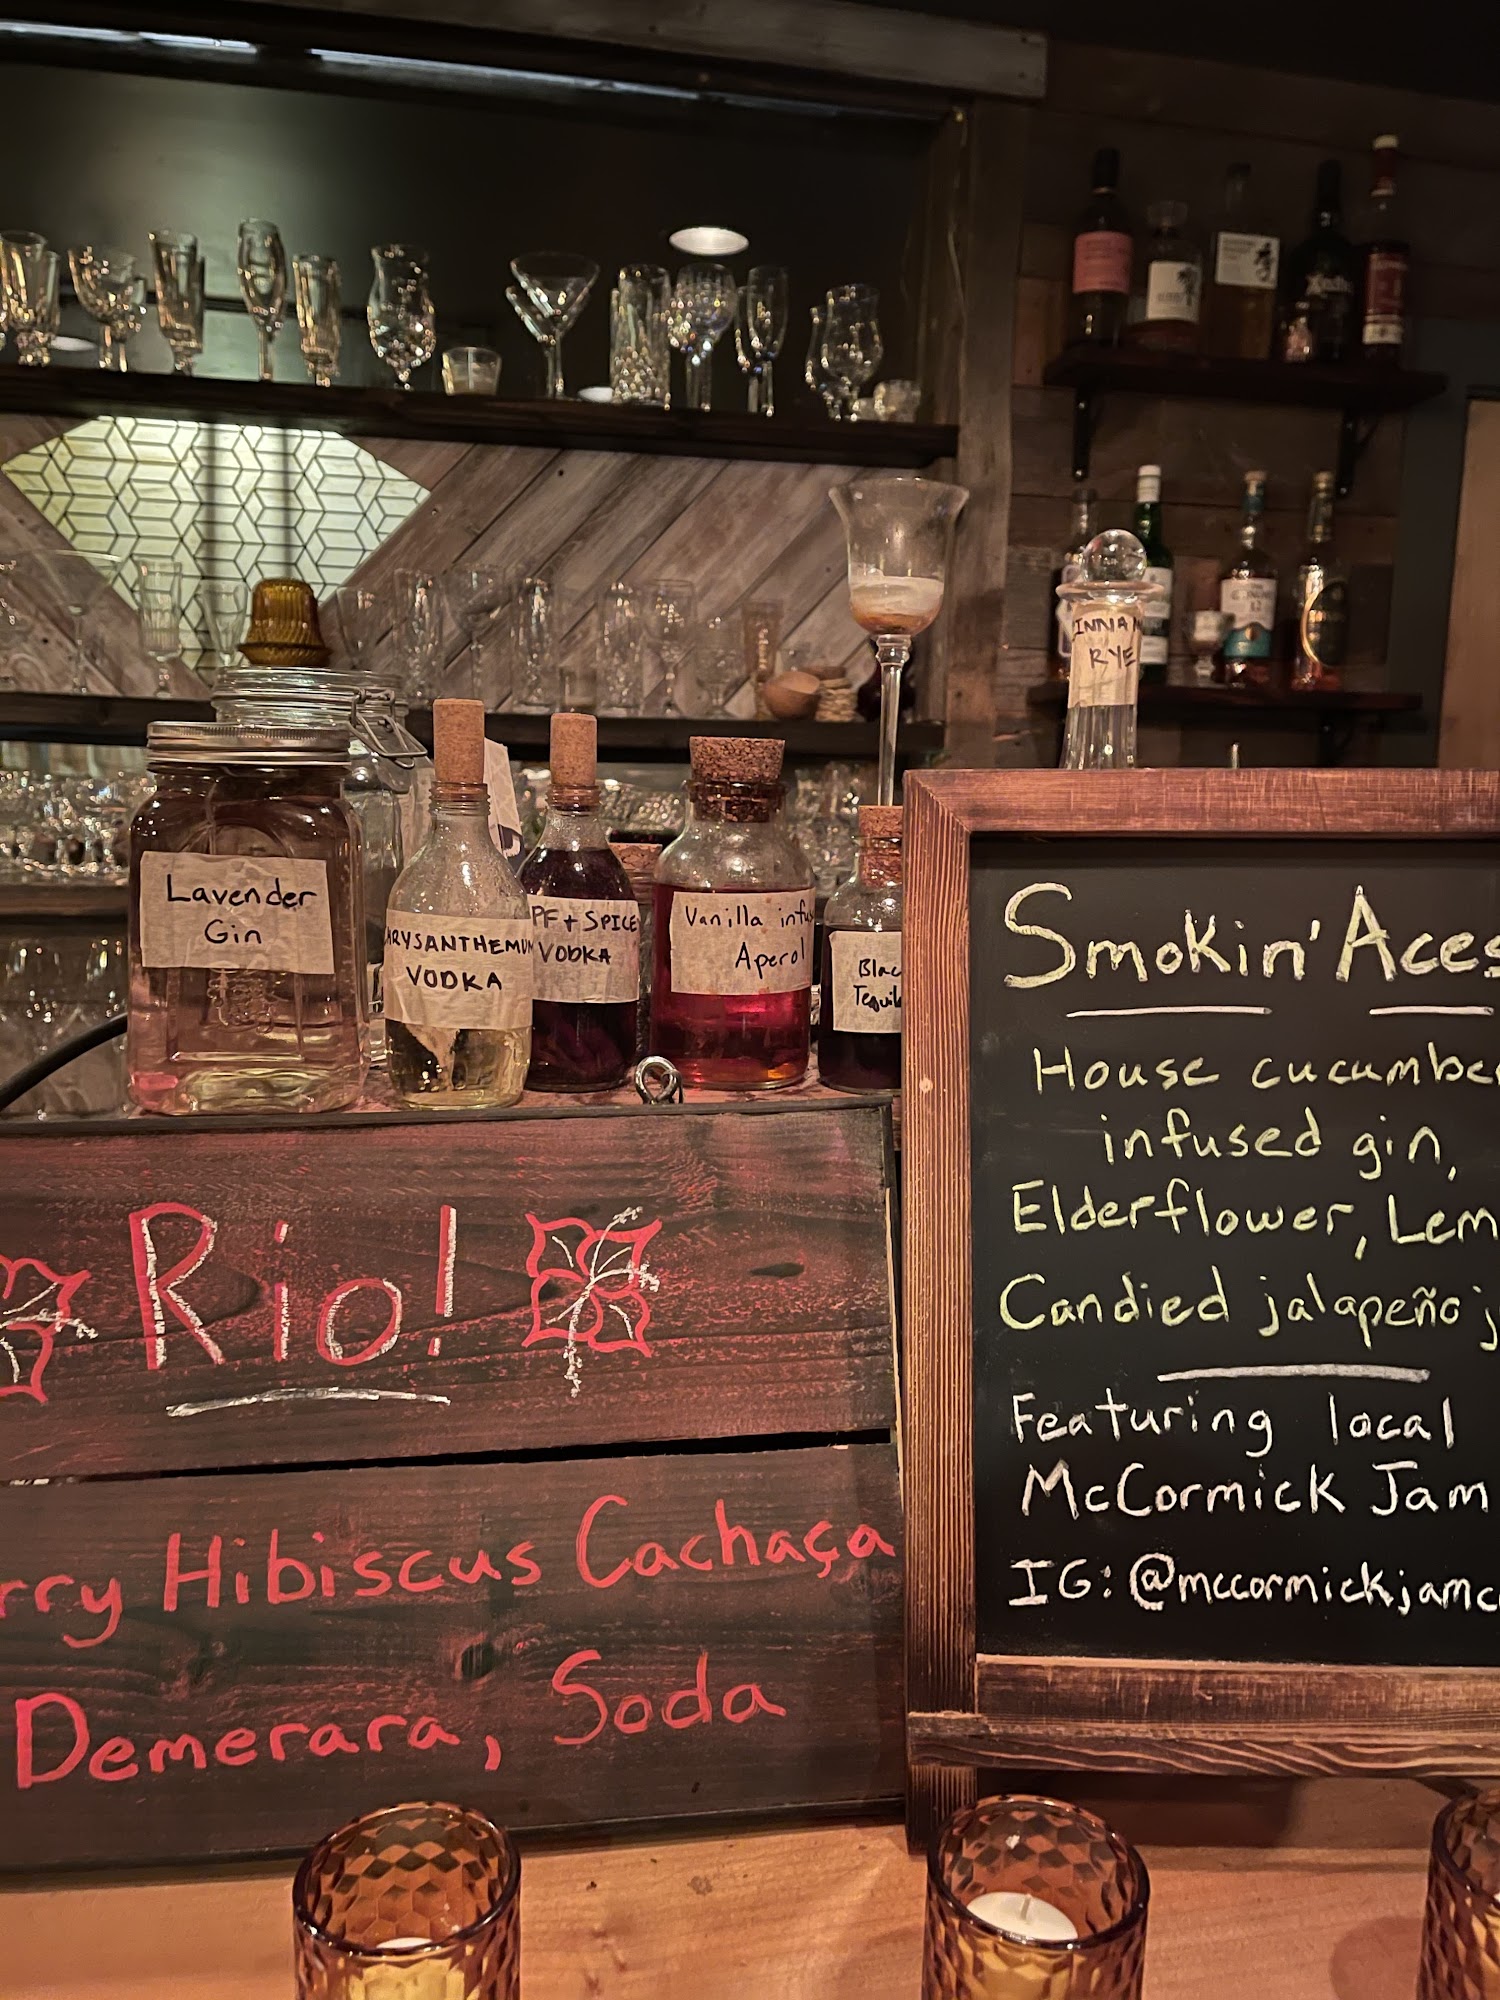 RYE
Lavender
Gin
CHRYSANTHEMUM
VODKA
PF + SPICE
VODKA
Vanilla infu
Aperol
Blac
Tequila
Rio!
rry Hibiscus Cachaça
Demerara, Soda
Smokin' Aces
House cucumber
infused gin,
Elderflower, Lem
Candied jalapeño j
Featuring local
McCormick Jam
IG: @mccormickjamc